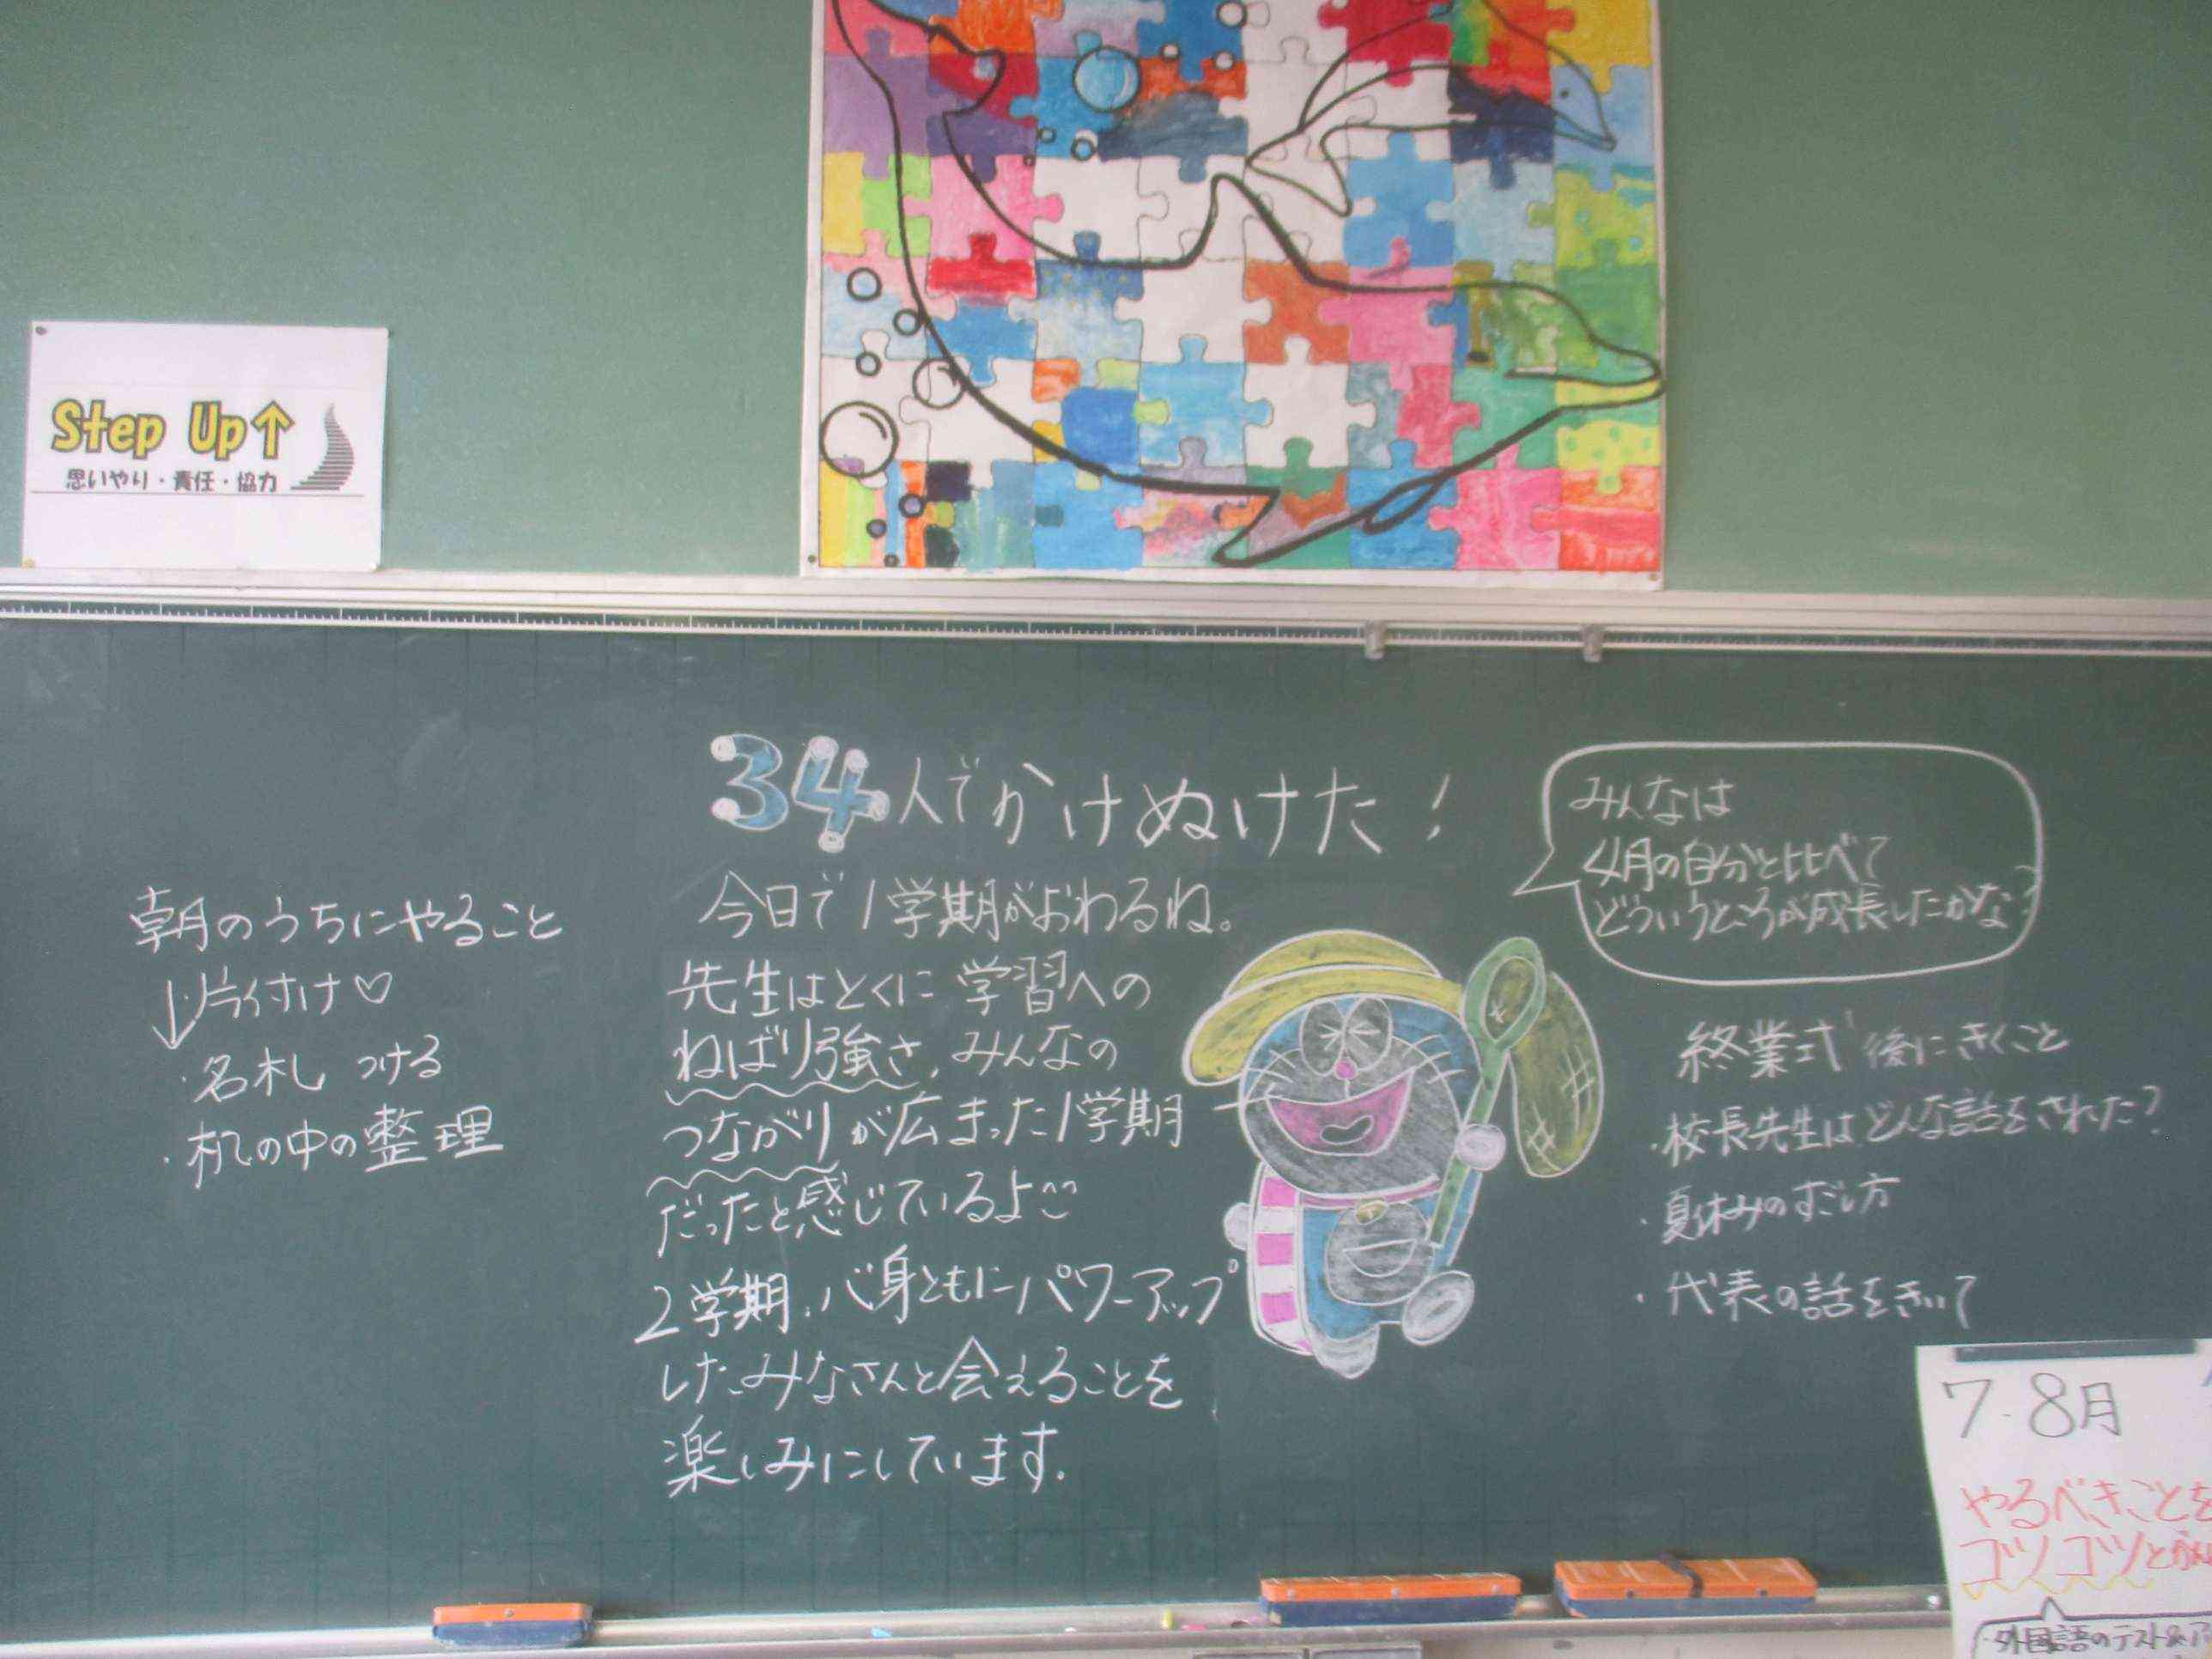 Step Up↑
思いやり・責任・協力
34人でかけぬけた!
今日で1学期がおわるね。
先生はとくに学習への
ねばり強さ、みんなの
つながりが広まった1学期
だったと感じているよ
2学期、心身ともにパワーアップ
したみなさんと会えることを
楽しみにしています.
朝のうちにやること
↓片付け♡
・名札 つける
・机の中の整理
みんなは
4月の自分と比べて
どういうところが成長したかな?
終業式後にきくこと
・校長先生はどんな話をされた?
・夏休みのすごし方
・代表の話をきいて
7.8月
やるべきことを
コツコツと
外国語のテスト&